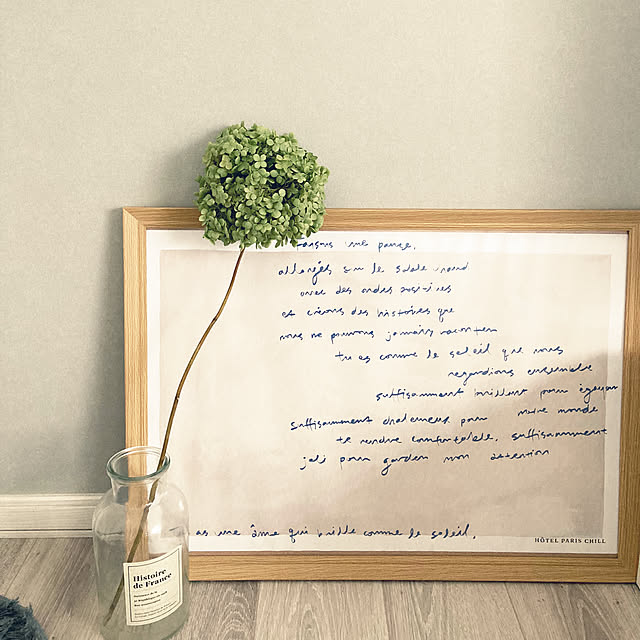 faisons une pause,
allongés sur le sable chaud
avec des ondes
et créons des histoires que
nous ne pouvons jamais raconter
tu es comme le soleil que nous
regardions ensemble
suffisamment brillant pour égayer
suffisamment chaleureux pour notre monde
te rendre confortable. suffisamment
joli pour garder mon attention
as une âme qui brille comme le soleil.
HÔTEL PARIS CHILL
Histoire
de France